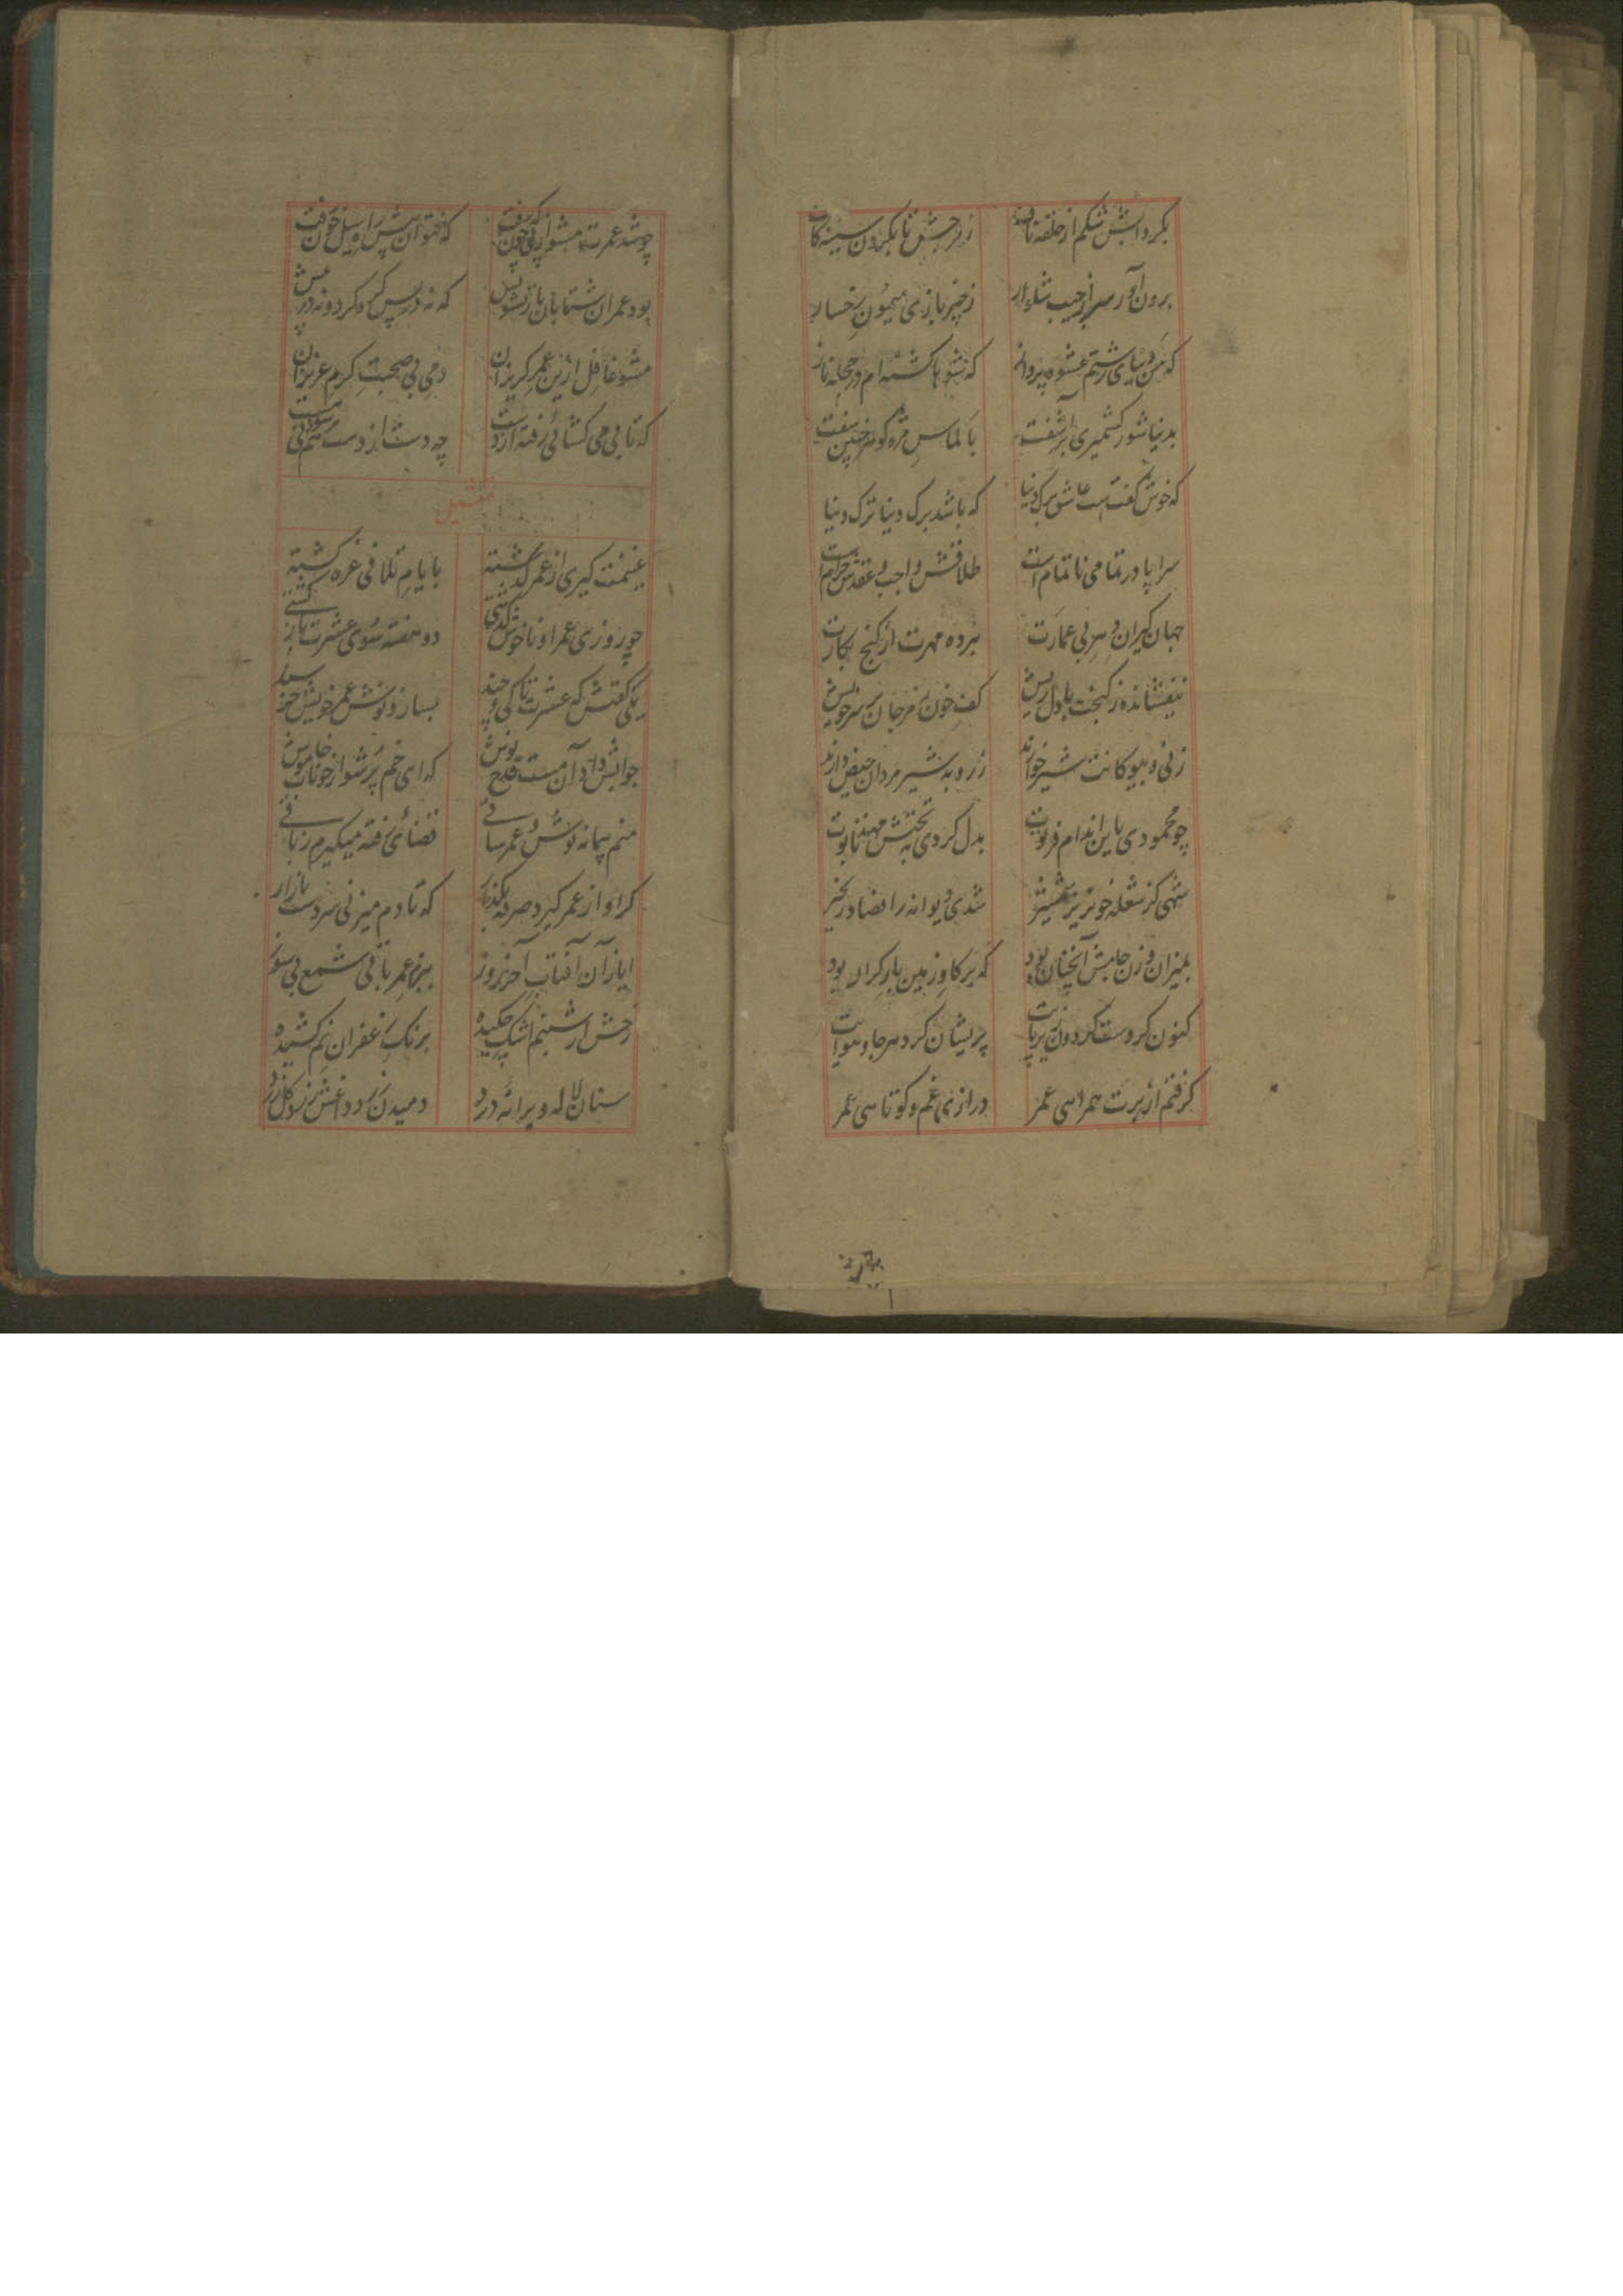 بکرداتش شکم از حلقه ناف زنرحبش تا بکردن سینه کاف
برون آور سر از جیب زخنبر بازی میمون رخسار
که من دنیای زشتم عشوه پرداز که شوها کشته ام در حجله ناز
بدنیا شور کشمیری برآشفت بالماس مژه کوهر چنین سفت
که خوش گفتست عاشق برک دنیا که باشد برک دنیا ترک دنیا
سراپا در تمامی ناتمام است طلاقش واجب و عقدش حرام است
جهان کیران دهر بی عمارت نبرده مهرت از کنج بکارت
نیفشانده ز کنجت با دل ریش کف خون ز مرجان بر سر خویش
زنی و بیوکانت شیرخوارند ز روبه شیرمردان حیض دارند
چو محمودی باین اندام فرتوت بدل کردی تختش به تابوت
شهی کز شعله خونریز شمشیر شدی دیوانه را قضا در زنجیر
بمیزان وزن جاهش آنچنان بود که بر کاو زمین بار کران بود
کنون کردست کردون زیر پایت پریشان کرد هر جا و هوایت
کرفتم از برت همراهی عمر درازی غم و کوتاهی عمر
بهتر
چو شد عمرت مشو از پی که چون رفت که نتوان پس پی سیل خون رفت
بود عمران شتابان باز تشویش که نه در پس کرد و نه در پیش
مشو غافل ازین عمر کریزان دمی بی صحبت کرم عزیزان
که تا پی می کشائی رفته از دست چه دست از دست هم بی
تمثیل
غنیمت کیری از عمر کذشته بایام تلافی غره کشته
چو روزی عمر او ناخوش کذشتی دو هفته سوی عشرت باز کشتی
یکی گفتش که عشرت تا کی و چند بساز و نوش عمر خویش خرسند
جوابش داد آن مست قدح نوش که ای خم پر شو از خوناب خاموش
منم پیمانه نوش و عمر ساقی قضائی رفته میکیرم ز باقی
کرا و از عمر کیرد صرفه بکذار که تا دم میزنی سردست بازار
ایاز آن آفتاب آخر روز ببزم عمر باقی شمع بی سوز
رخش از شبنم اشک چکیده برنک زعفران نم کشیده
ستان لاله ویرانه درد دمیدن کرد داغش زو کل زرد